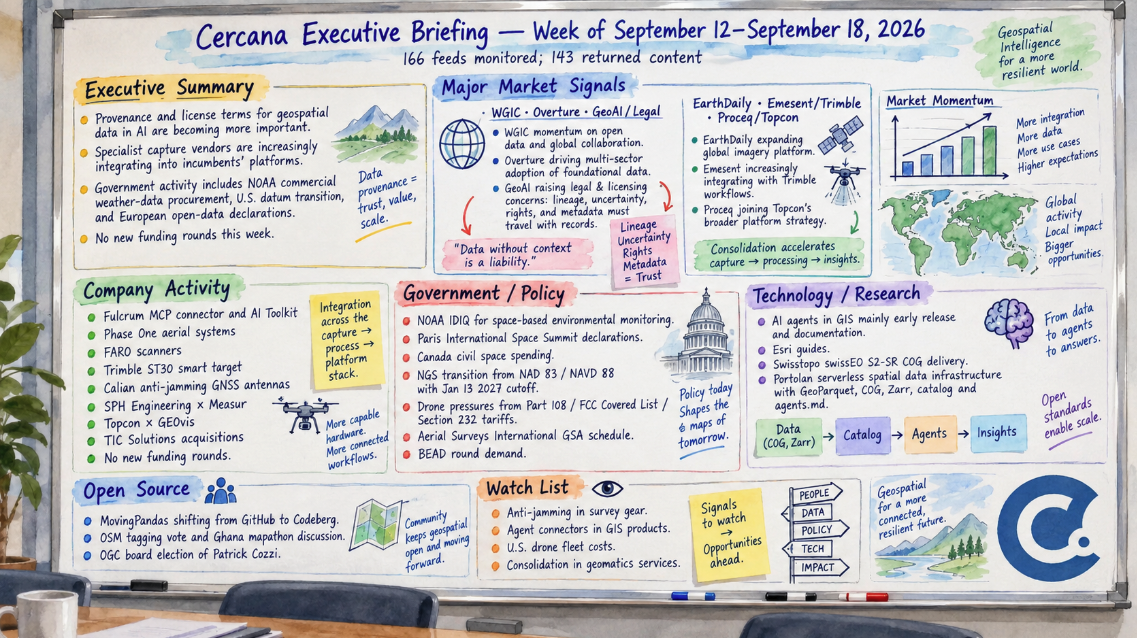 Cercana Executive Briefing — Week of September 12–September 18, 2026
166 feeds monitored; 143 returned content
Geospatial
Intelligence
for a more
resilient world.
Executive Summary
Provenance and license terms for geospatial
data in AI are becoming more important.
Specialist capture vendors are increasingly
integrating into incumbents' platforms.
Government activity includes NOAA commercial
weather-data procurement, U.S. datum transition,
and European open-data declarations.
No new funding rounds this week.
Data
provenance =
trust, value,
scale.
Major Market Signals
WGIC · Overture · GeoAI / Legal
WGIC momentum on open
data and global collaboration.
Overture driving multi-sector
adoption of foundational data.
GeoAI raising legal & licensing
concerns: lineage, uncertainty,
rights, and metadata must
travel with records.
"Data without context
is a liability."
Lineage
Uncertainty
Rights
Metadata
= Trust
EarthDaily · Emesent/Trimble
· Proceq/Topcon
EarthDaily expanding
global imagery platform.
Emesent increasingly
integrating with Trimble
workflows.
Proceq joining Topcon's
broader platform strategy.
Consolidation accelerates
capture → processing → insights.
Market Momentum
More integration
More data
More use cases
Higher expectations
Global
activity
Local impact
Bigger
opportunities.
Company Activity
Fulcrum MCP connector and AI Toolkit
Phase One aerial systems
FARO scanners
Trimble ST30 smart target
Calian anti-jamming GNSS antennas
SPH Engineering × Measur
Topcon × GEOvis
TIC Solutions acquisitions
No new funding rounds.
Integration
across the
capture →
process →
platform
stack.
More capable
hardware.
More connected
workflows.
Government / Policy
NOAA IDIQ for space-based environmental monitoring.
Paris International Space Summit declarations.
Canada civil space spending.
NGS transition from NAD 83 / NAVD 88
with Jan 13 2027 cutoff.
Drone pressures from Part 108 / FCC Covered List /
Section 232 tariffs.
Aerial Surveys International GSA schedule.
BEAD round demand.
Policy today
Shapes the
maps of
tomorrow.
Technology / Research
AI agents in GIS mainly early release
and documentation.
Esri guides.
Swisstopo swissEO S2-SR COG delivery.
Portolan serverless spatial data infrastructure
with GeoParquet, COG, Zarr, catalog and
agents.md.
From data
to agents
to answers.
Data
(COG, Zarr)
→ Catalog → Agents → Insights
Open
standards
enable scale.
Open Source
MovingPandas shifting from GitHub to Codeberg.
OSM tagging vote and Ghana mapathon discussion.
OGC board election of Patrick Cozzi.
Community
keeps geospatial
open and moving
forward.
Watch List
Anti-jamming in survey gear.
Agent connectors in GIS products.
U.S. drone fleet costs.
Consolidation in geomatics services.
Signals
to watch
→
Opportunities
ahead.
PEOPLE
DATA
POLICY
TECH
IMPACT
Geospatial
for a more
connected,
resilient future.